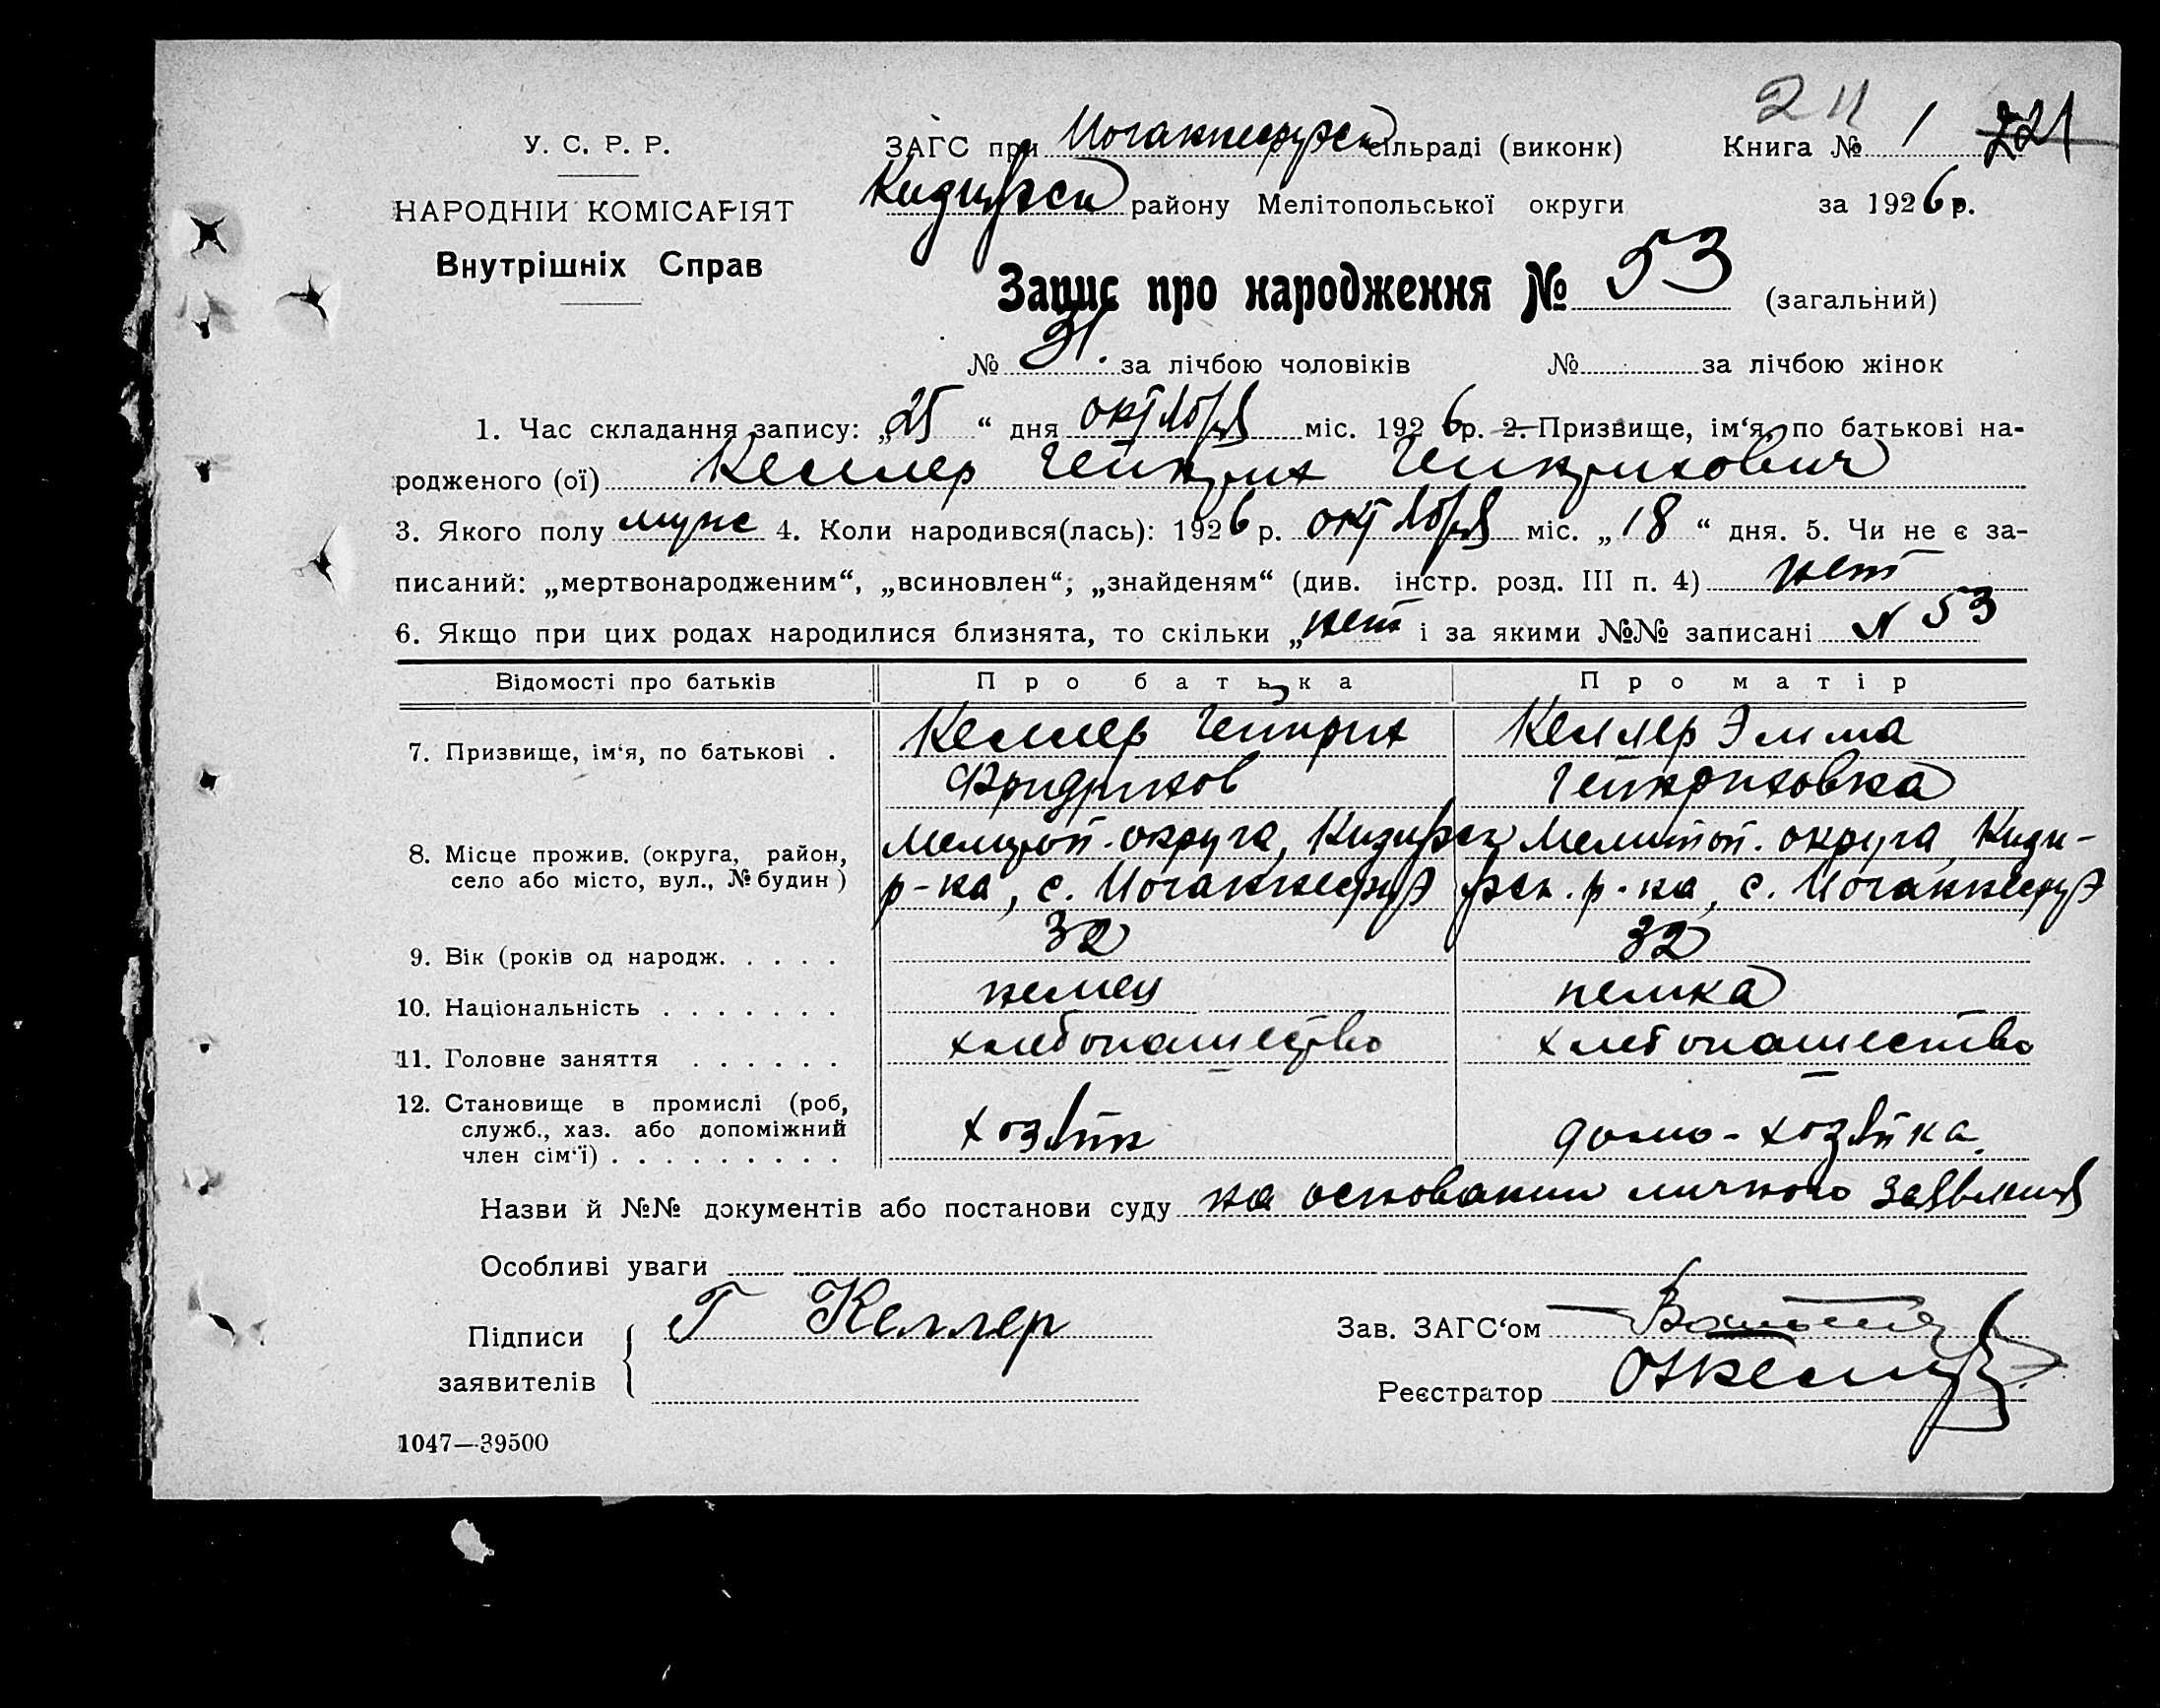 211
У. С. Р. Р.
ЗАГС при Иоганнесрурск сільраді (виконк)
Книга № 1 221
НАРОДНІЙ КОМІСАРІЯТ
району Мелітопольської округи
за 1926 р.
Внутрішніх Справ
Запис про народження № 53 (загальний)
№ 31. за лічбою чоловіків № за лічбою жінок
1. Час складання запису: „25“ дня октября міс. 1926 р. 2. Призвище, ім‘я, по батькові на-
родженого (ої) Келлер Гейнрих Гейнрихович
3. Якого полу муж 4. Коли народився(лась): 1926 р. октября міс. „18“ дня. 5. Чи не є за-
писаний: „мертвонародженим“, „всиновлен“; „знайденям“ (див. інстр. розд. III п. 4) нет
6. Якщо при цих родах народилися близнята, то скільки „нет і за якими №№ записані N 53
Відомості про батьків Про батька Про матір
7. Призвище, ім‘я, по батькові . Келлер Гейнрих Келлер Эмма
Фридрихов Гейнриховна
8. Місце прожив. (округа, район, село або місто, вул., № будин) Мелитоп. округа, Мелитоп. округа,
р-на, с. Иоганнесру р-на, с. Иоганнесру
9. Вік (років од народж. . . . . 32 32
10. Національність . . . . . . . немец немка
11. Головне заняття . . . . . . хлебопашество хлебопашество
12. Становище в промислі (роб,
служб., хаз. або допоміжний
член сім‘ї) . . . . . . . . . хозяин домо-хозяйка
Назви й №№ документів або постанови суду на основании личного заявления
Особливі уваги
Підписи
заявителів
Г Келлер
Зав. ЗАГС‘ом
Реєстратор
1047—39500